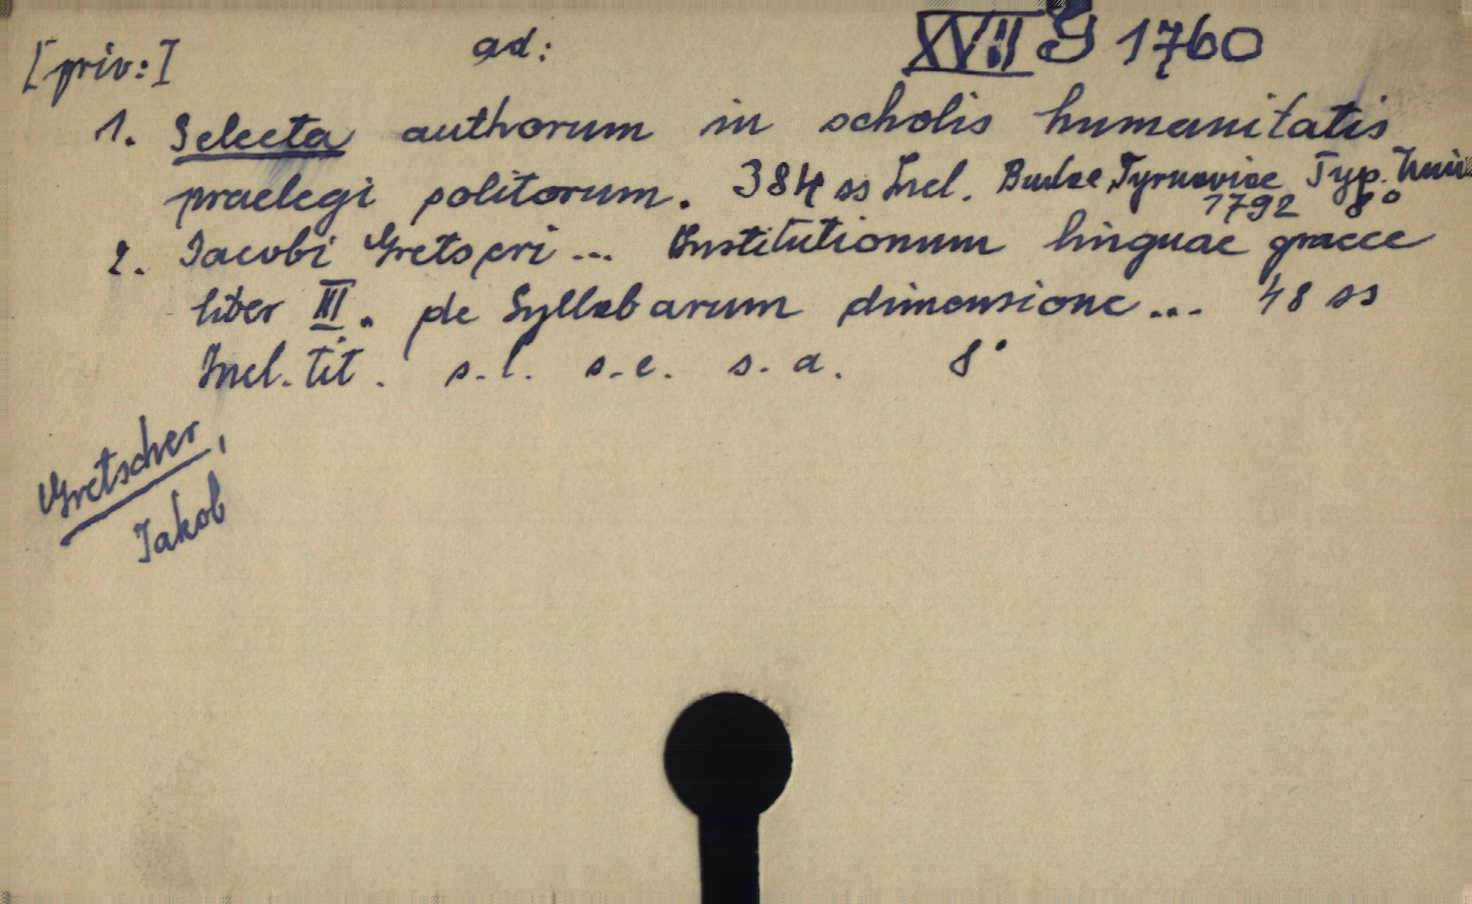 [priv:] ad: XVII G 1760
1. Selecta authorum in scholis humanitatis
praelegi politorum. 384 ss Incl. Budae, Tyrnaviae Typ. Univ
1792 8°
2. Jacobi Gretseri ... Institutionum linguae graece
liber III. de Syllabarum dimensione ... 48 ss
Incl. tit. s. l. s. e. s. a. 8°
Gretscher,
Jakob